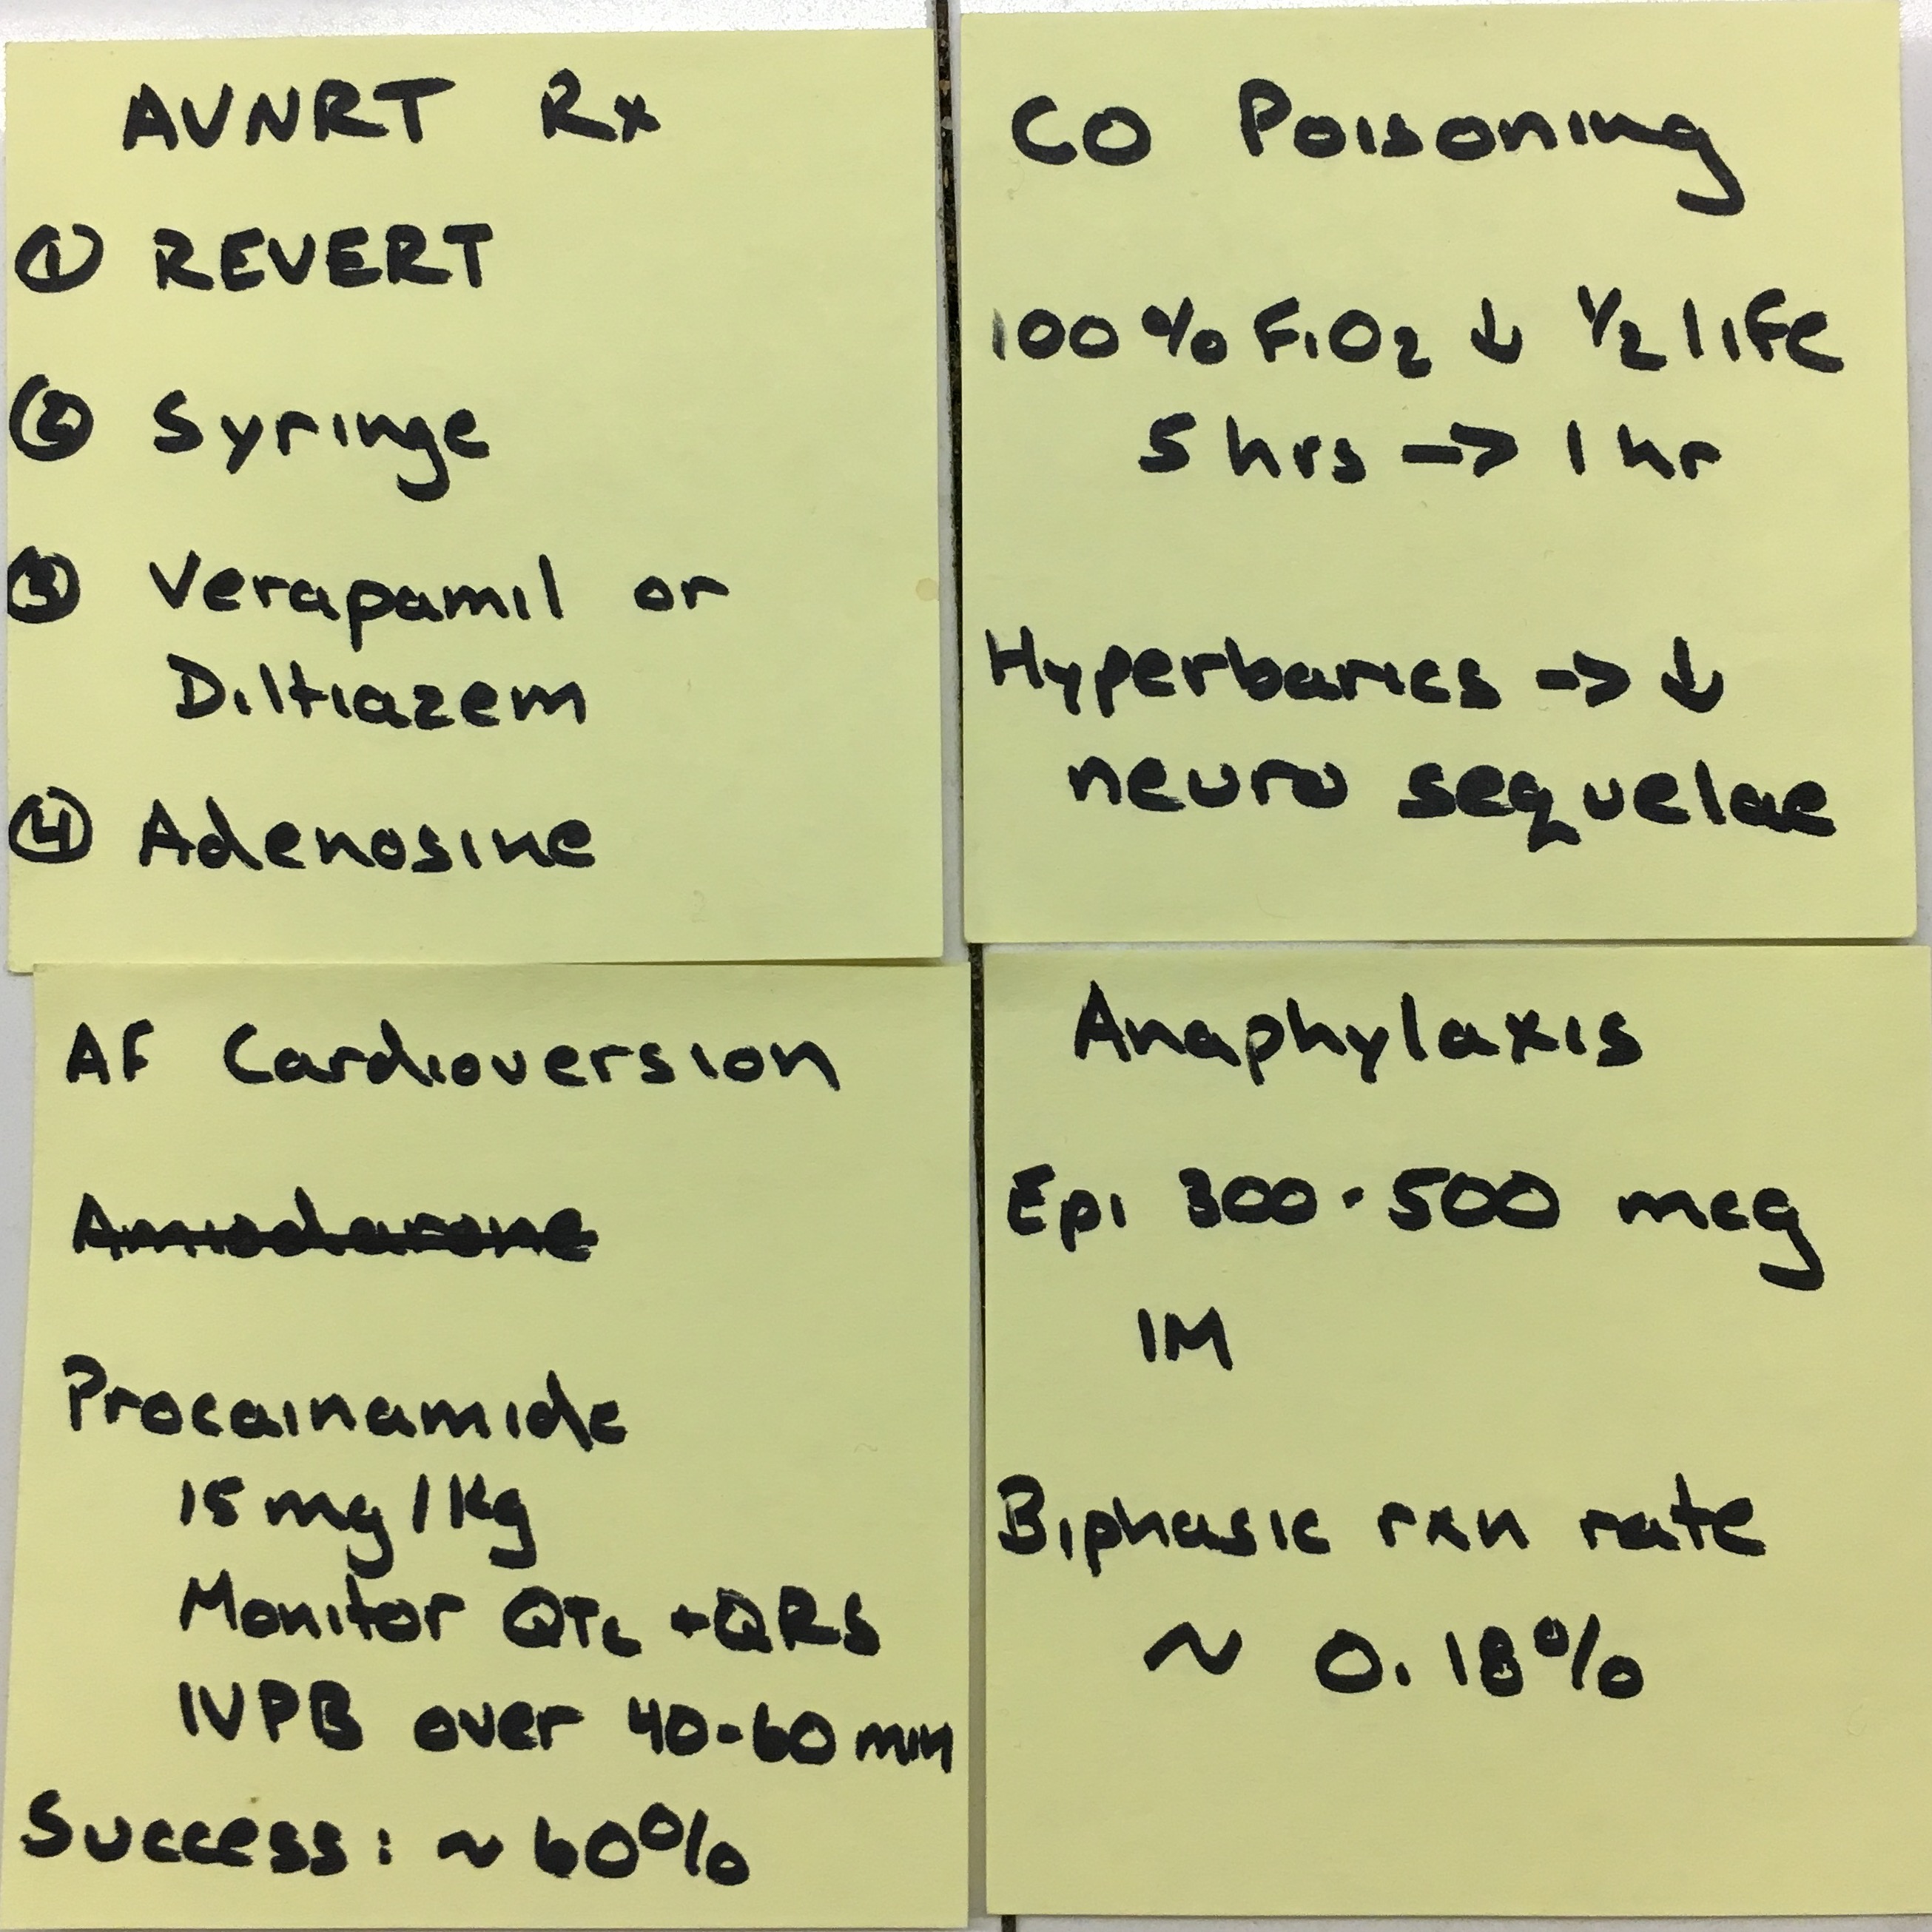 AVNRT Rx
① REVERT
② Syringe
③ Verapamil or
Diltiazem
④ Adenosine
CO Poisoning
100% FiO2 ↓ 1/2 life
5 hrs -> 1 hr
Hyperbarics -> ↓
neuro sequelae
AF Cardioversion
Amiodarone
Procainamide
15 mg/kg
Monitor QTc + QRS
IVPB over 40-60 min
Success: ~ 60%
Anaphylaxis
Epi 300-500 mcg
IM
Biphasic rxn rate
~ 0.18%